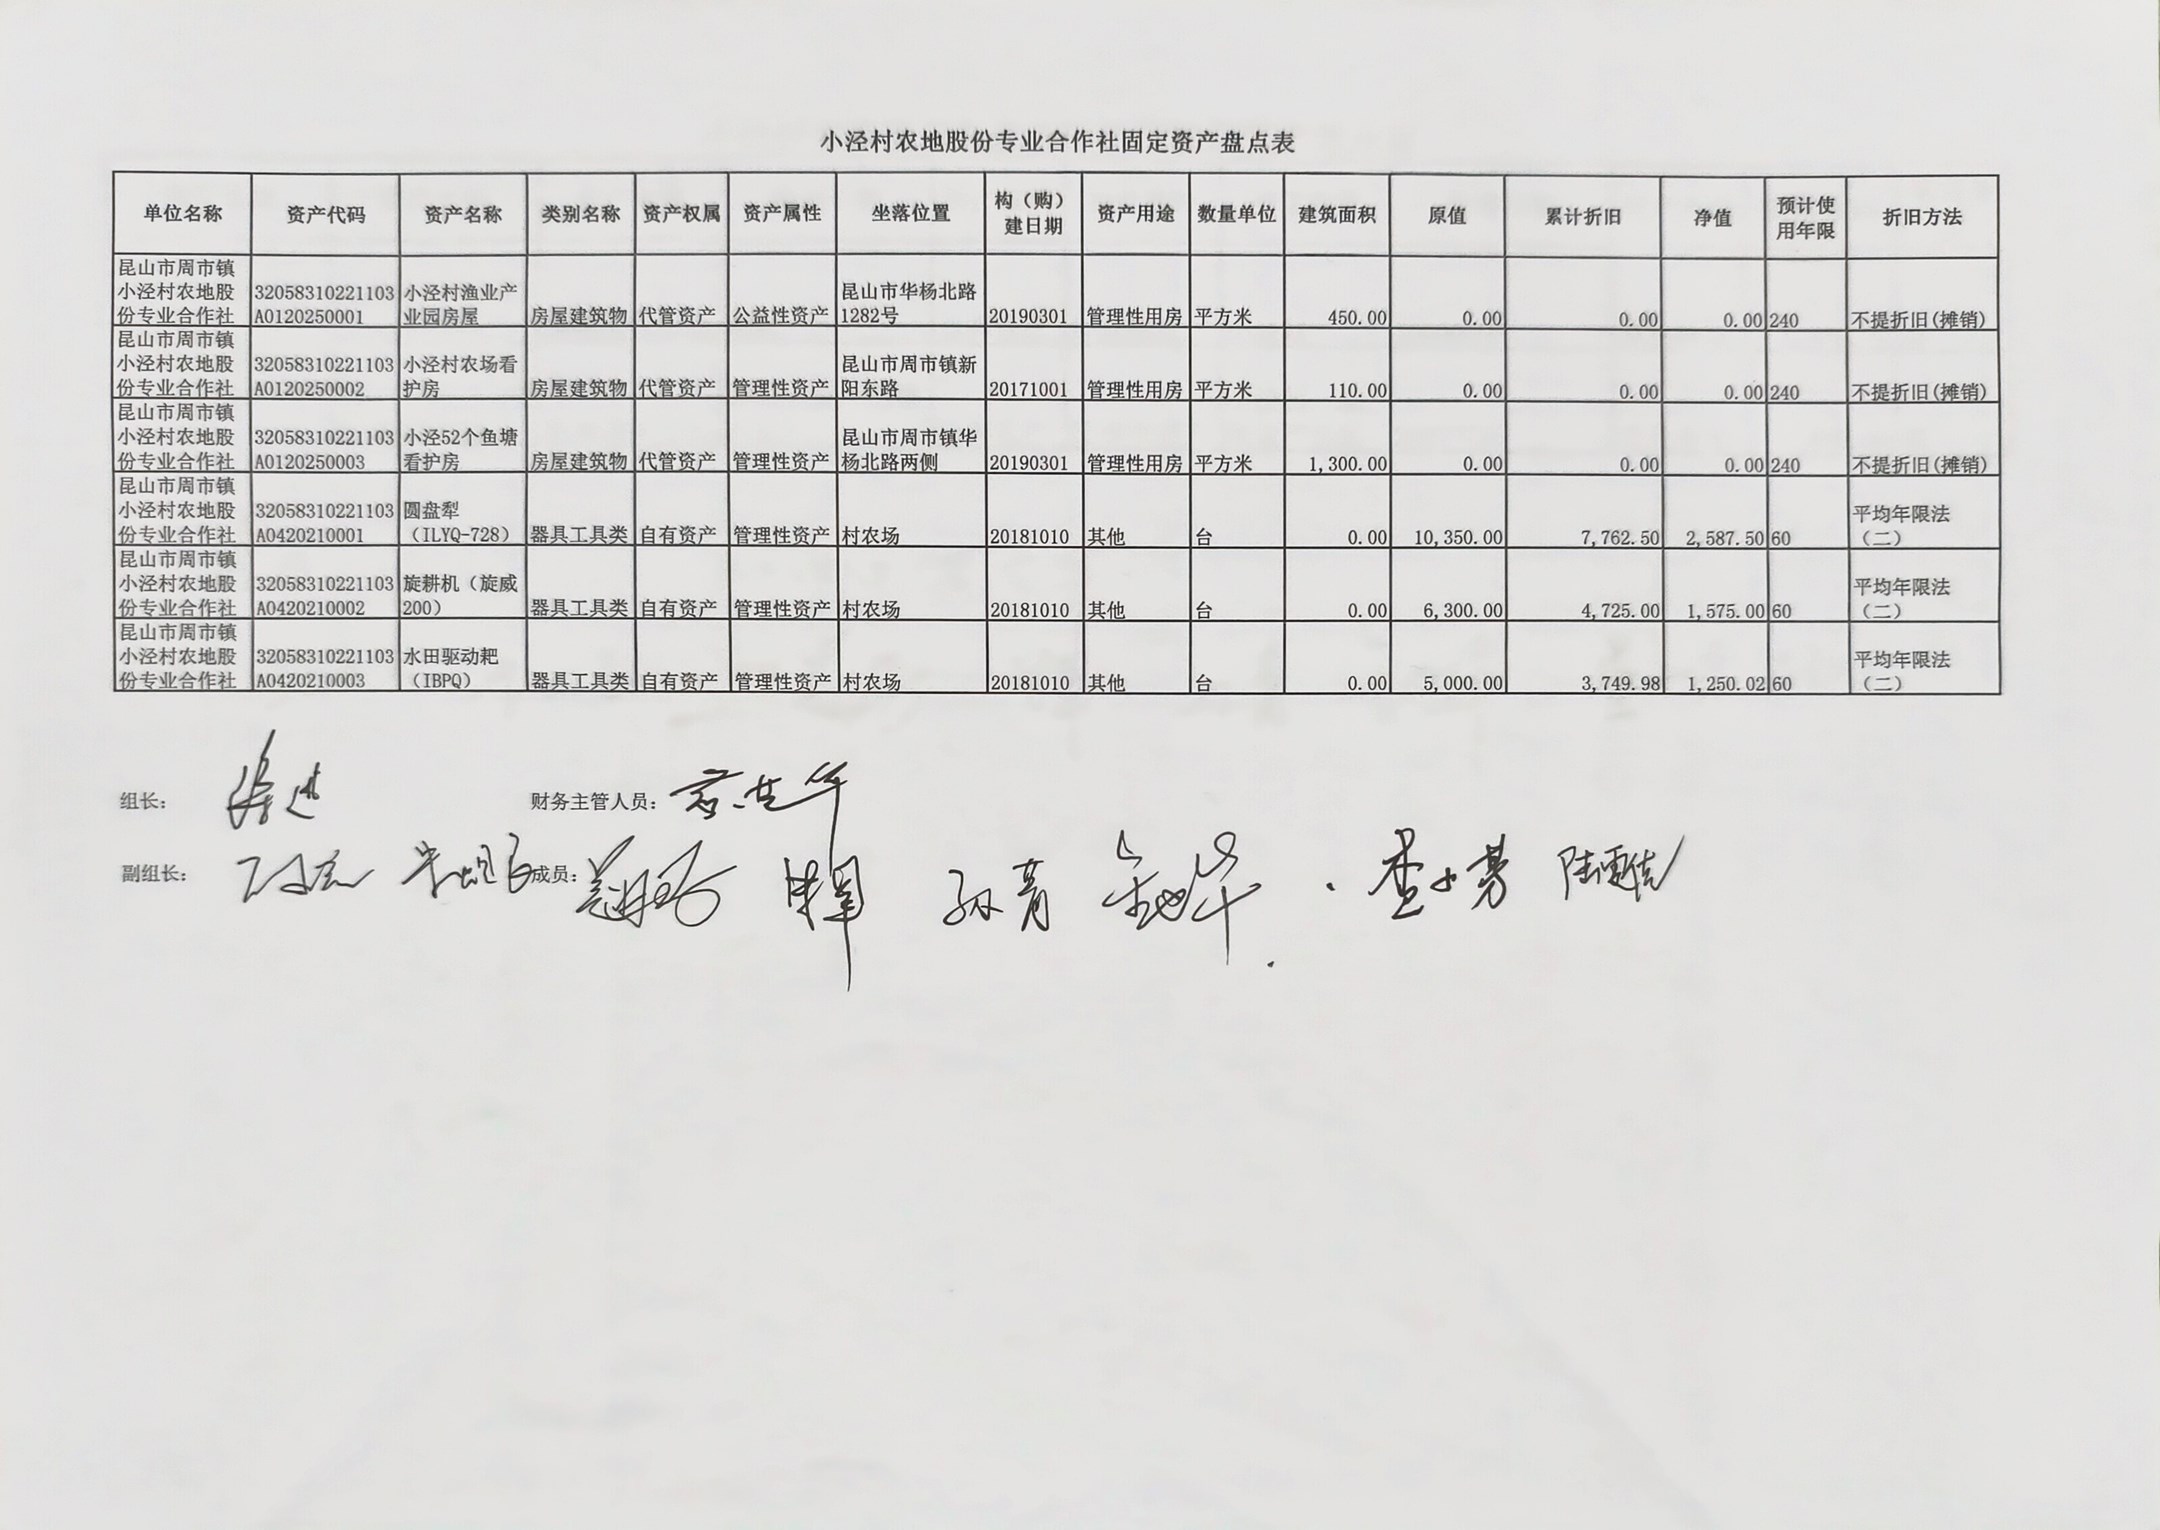 小泾村农地股份专业合作社固定资产盘点表
单位名称 资产代码 资产名称 类别名称 资产权属 资产属性 坐落位置 构（购）建日期 资产用途 数量单位 建筑面积 原值 累计折旧 净值 预计使用年限 折旧方法
昆山市周市镇小泾村农地股份专业合作社 32058310221103A0120250001 小泾村渔业产业园房屋 房屋建筑物 代管资产 公益性资产 昆山市华杨北路1282号 20190301 管理性用房 平方米 450.00 0.00 0.00 0.00 240 不提折旧(摊销)
昆山市周市镇小泾村农地股份专业合作社 32058310221103A0120250002 小泾村农场看护房 房屋建筑物 代管资产 管理性资产 昆山市周市镇新阳东路 20171001 管理性用房 平方米 110.00 0.00 0.00 0.00 240 不提折旧(摊销)
昆山市周市镇小泾村农地股份专业合作社 32058310221103A0120250003 小泾52个鱼塘看护房 房屋建筑物 代管资产 管理性资产 昆山市周市镇华杨北路两侧 20190301 管理性用房 平方米 1,300.00 0.00 0.00 0.00 240 不提折旧(摊销)
昆山市周市镇小泾村农地股份专业合作社 32058310221103A0420210001 圆盘犁（ILYQ-728） 器具工具类 自有资产 管理性资产 村农场 20181010 其他 台 0.00 10,350.00 7,762.50 2,587.50 60 平均年限法（二）
昆山市周市镇小泾村农地股份专业合作社 32058310221103A0420210002 旋耕机（旋威200） 器具工具类 自有资产 管理性资产 村农场 20181010 其他 台 0.00 6,300.00 4,725.00 1,575.00 60 平均年限法（二）
昆山市周市镇小泾村农地股份专业合作社 32058310221103A0420210003 水田驱动耙（IBPQ） 器具工具类 自有资产 管理性资产 村农场 20181010 其他 台 0.00 5,000.00 3,749.98 1,250.02 60 平均年限法（二）
组长： 财务主管人员：
副组长： 成员： 孙菁 查小芳